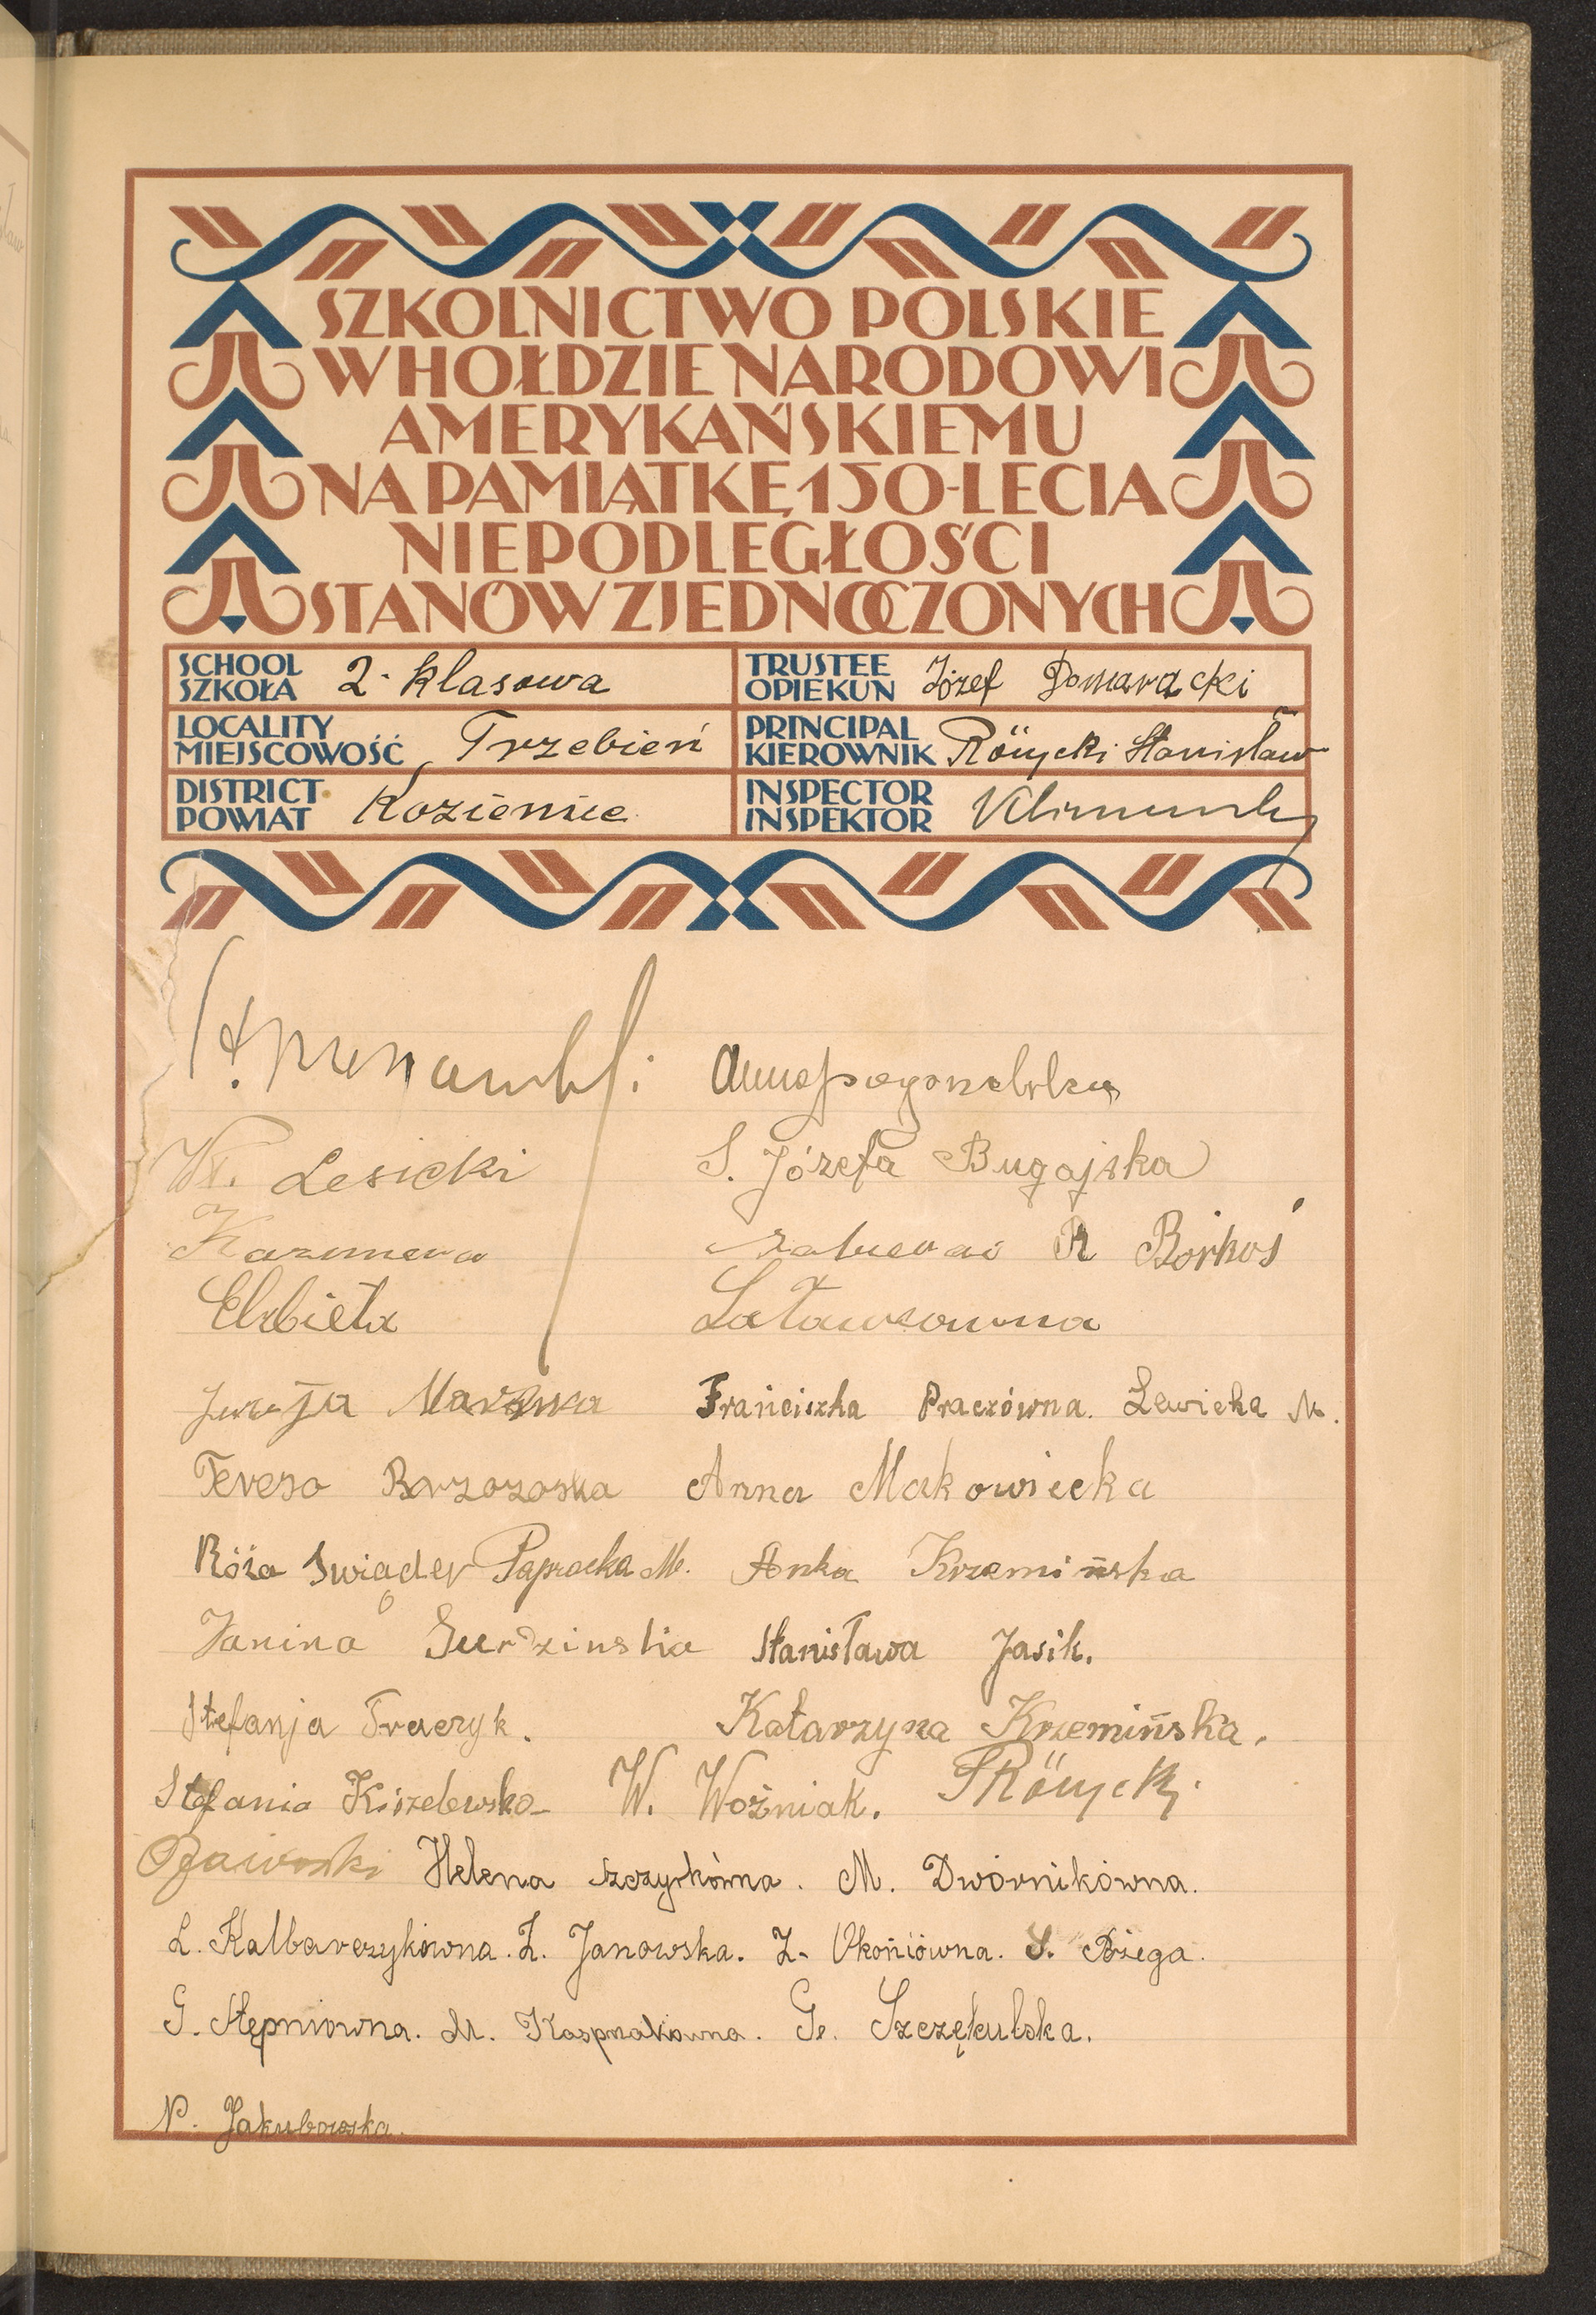 SZKOLNICTWO POLSKIE
W HOŁDZIE NARODOWI
AMERYKAŃSKIEMU
NA PAMIĄTKĘ 150-LECIA
NIEPODLEGŁOŚCI
STANÓW ZJEDNOCZONYCH
SCHOOL SZKOŁA 2-klasowa
TRUSTEE OPIEKUN Józef Domaracki
LOCALITY MIEJSCOWOŚĆ Trzebień
PRINCIPAL KIEROWNIK Różycki Stanisław
DISTRICT POWIAT Kozienice
INSPECTOR INSPEKTOR
Anna
Wł. Lesicki S. Józefa Bugajska
Kazimiera R Borkoś
Elżbieta
Franciszka Praczówna. Lewicka M.
Teresa Brzozoska Anna Makowiecka
Róża Swiąder Paprocka M. Anka Krzemińska
Janina Gurdzinska Stanisława Jasik.
Stefanja Traczyk. Katarzyna Krzemińska.
Stefania Kiszelewska W. Woźniak. SRóżycki
Helena Szczyrkówna. M. Dwórnikówna.
L. Kalbarczykówna. Z. Janowska. Z. Okoniówna. S. Bżega.
G. Stępniowna. M. Kasprzakowna. Ge. Szczękulska.
N. Jakubowska.